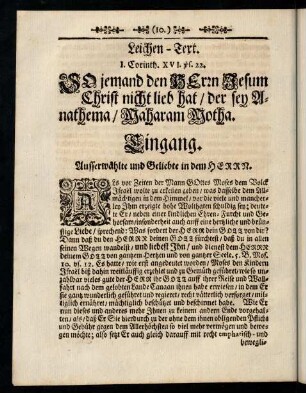 (10.)
Leichen-Text.
I. Corinth. XVI. v. 22.
SO jemand den HErrn Jesum
Christ nicht lieb hat / der sey A-
nathema / Maharam Motha.
Eingang.
Ausserwählte und Geliebte in dem HERRN.
ALs vor Zeiten der Mann GOttes Moses dem Volck
Israel wolte zu erkennen geben / was dasselbe dem All-
mächtigen in dem Himmel / vor die viele und mancher-
ley Ihm erzeigte hohe Wolthaten schuldig sey; deute-
te Er / neben einer kindlichen Ehren-Furcht und Ge-
horsam / insonderheit auch auff eine hertzliche und brün-
stige Liebe / sprechend: Was fordert der HERR dein GOtt von dir?
Dann daß du den HERRN deinen GOtt fürchtest / daß du in allen
seinen Wegen wandelst / und liebest Ihn / und dienest dem HERRN
deinem GOtt von gantzem Hertzen und von gantzer Seele. 5. B. Mos.
10. vs. 12. Es hatte vor erst angedeutet worden / Moses den Kindern
Israel biß dahin weitläufftig erzehlt und zu Gemüth geführet / wie so un-
zahlbar vieles gut der HERR ihr GOtt auff ihrer Reise und Wall-
fahrt nach dem gelobten Lande Canaan ihnen habe erwiesen / in dem Er
sie gantz wunderlich geführet und regieret / recht vätterlich versorget / mil-
tiglich ernähret / mächtiglich beschützet und beschirmet habe. Wie Er
nun dieses und anderes mehr Ihnen zu keinem andern Ende vorgehal-
ten / als / daß Er Sie hierdurch zu der ohne dem ihnen obligenden Pflicht
und Gebühr gegen dem Allerhöchsten so viel mehr vermögen und bewe-
gen möchte; also setzt Er auch gleich darauff mit recht emphatisch- und
bewegli-